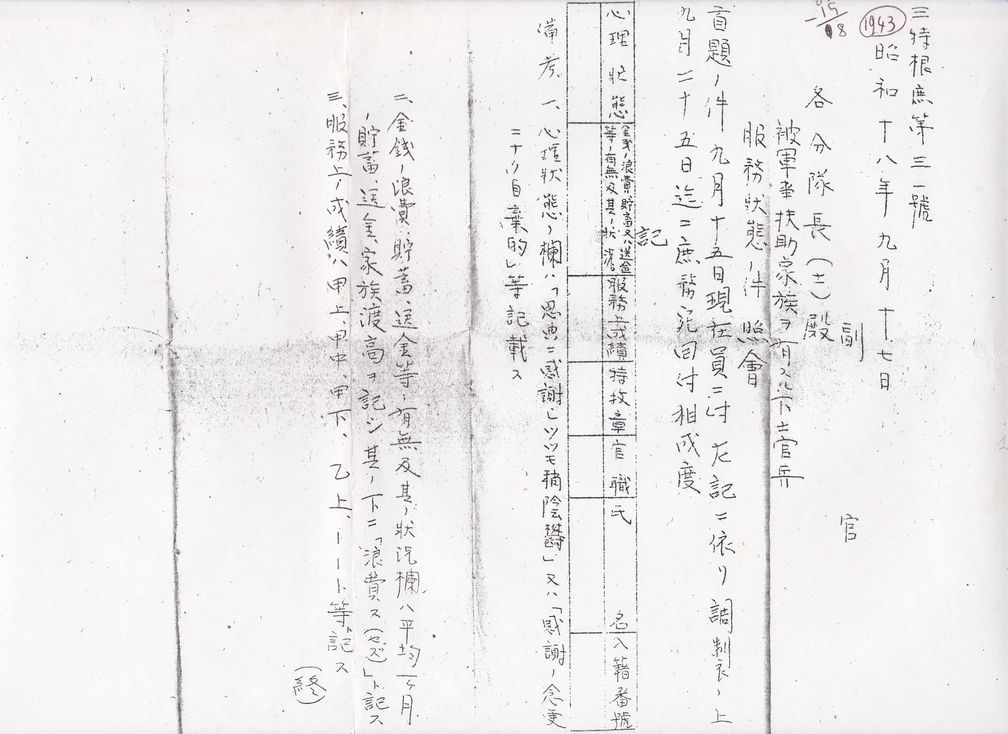 三特根庶第三一號
1943
昭和十八年九月十七日
15
18
副官
各分隊長(士)殿
被軍事扶助家族ヲ有スル下士官兵
服務狀態ノ件照會
首題ノ件九月十五日現在員ニ付左記ニ依リ調製ノ上
九月二十五日迄ニ庶務宛回付相成度
記
入籍番號
氏名
官職
特技章
服務上成績
金錢ノ浪費、貯蓄又ハ送金
等ノ有無及其ノ狀況
心理狀態
備考 一、心理狀態ノ欄ハ「恩典ニ感謝シツツモ稍陰鬱」又ハ「感謝ノ念更
ニナク自棄的」等記載ス
二、金錢ノ浪費、貯蓄、送金等ノ有無及其ノ狀況欄ハ平均一ヶ月
ノ貯蓄、送金、家族渡高ヲ記シ其ノ下ニ「浪費ス(セズ)」ト記ス
三、服務上ノ成績ハ甲上、甲中、甲下、乙上、ーート等記ス
(終)